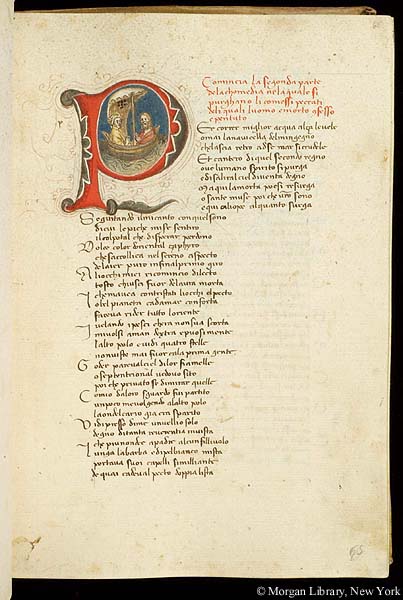 Comincia la segonda parte
dela chomedia nela quale si
purghano li comessi peccati
deli quali luomo e morto chesso
e pentuto
P
Er correr miglior acqua alça le vele
omai la navicella del mio ingegno
che lascia retro adse mar si crudele
Et cantero di quel secondo regno
ove lumano spirito si purga
e di salir al ciel diventa degno
Ma qui la morta poesi resurga
o sante muse poi che vostro sono
e qui caliope alquanto surga
Seguitando il mi canto con quel sono
di cui le piche misere sentiro
lo colpo tal che disperar perdono
Dolce color doriental çaphyro
che saccollica nel sereno aspecto
de laier puro infinal primo giro
Aliocchi miei ricomincio dilecto
tosto chiusci fuor de laura morta
I che mavea contristati liocchi el pecto
lo bel pianeta cadamar conforta
faceva rider tutto loriente
I velando i pesci chera non sua scorta
mi volsi aman dextra e puosi mente
lalto polo e vidi quatro stelle
non viste mai fuor cala prima gente
Goder pareva il ciel di lor fiamelle
o septentrional vedovo sito
poi che privato se di mirar quelle
Como da loro sguardo fui partito
un poco me volgendo alalto polo
la onde l carro gia era sparito
Vidi presso di me un veglio solo
degno di tanta reverentia in vista
I che piu non de a padre alcun figliuolo
lunga la barba e di pel bianco mista
portava suoi capelli simigliante
de quai cadeva al pecto doppia lista
65
© Morgan Library, New York